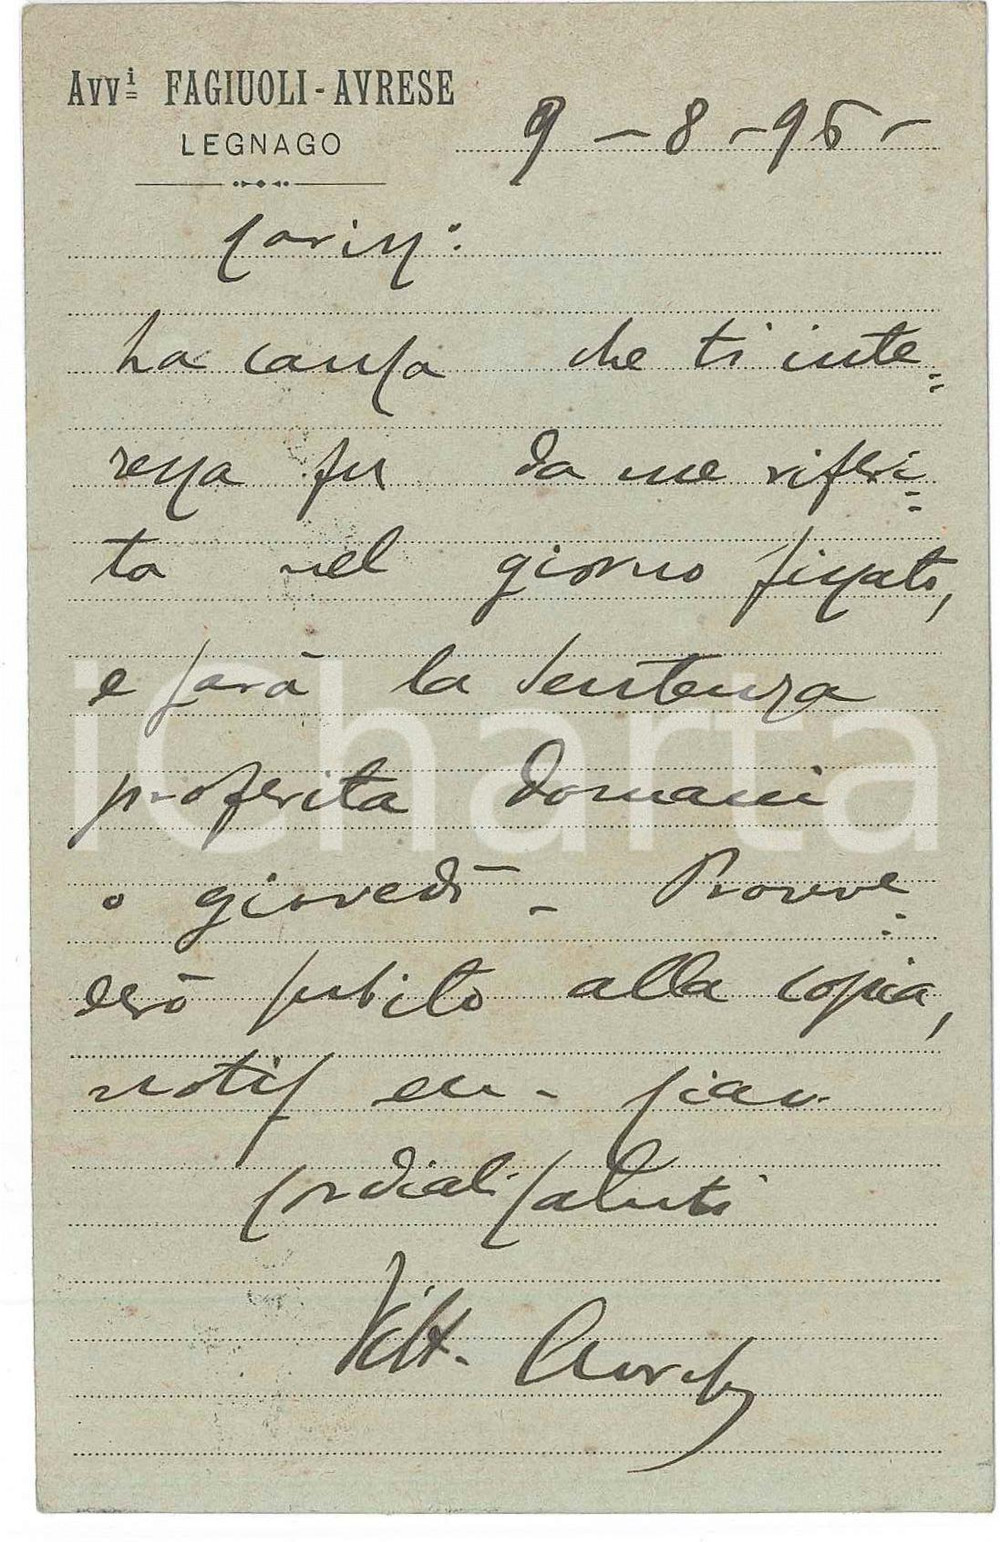 Avvⁱ FAGIUOLI - AVRESE
LEGNAGO
9 - 8 - 96 -
Cariss:
La causa che ti inte=
ressa fu da me riferi=
ta nel giorno fissato,
e sarà la sentenza
proferita domani
o giovedì - Provve=
derò subito alla copia,
notif
Cordiali saluti
Vitt. Avrese
iCharta